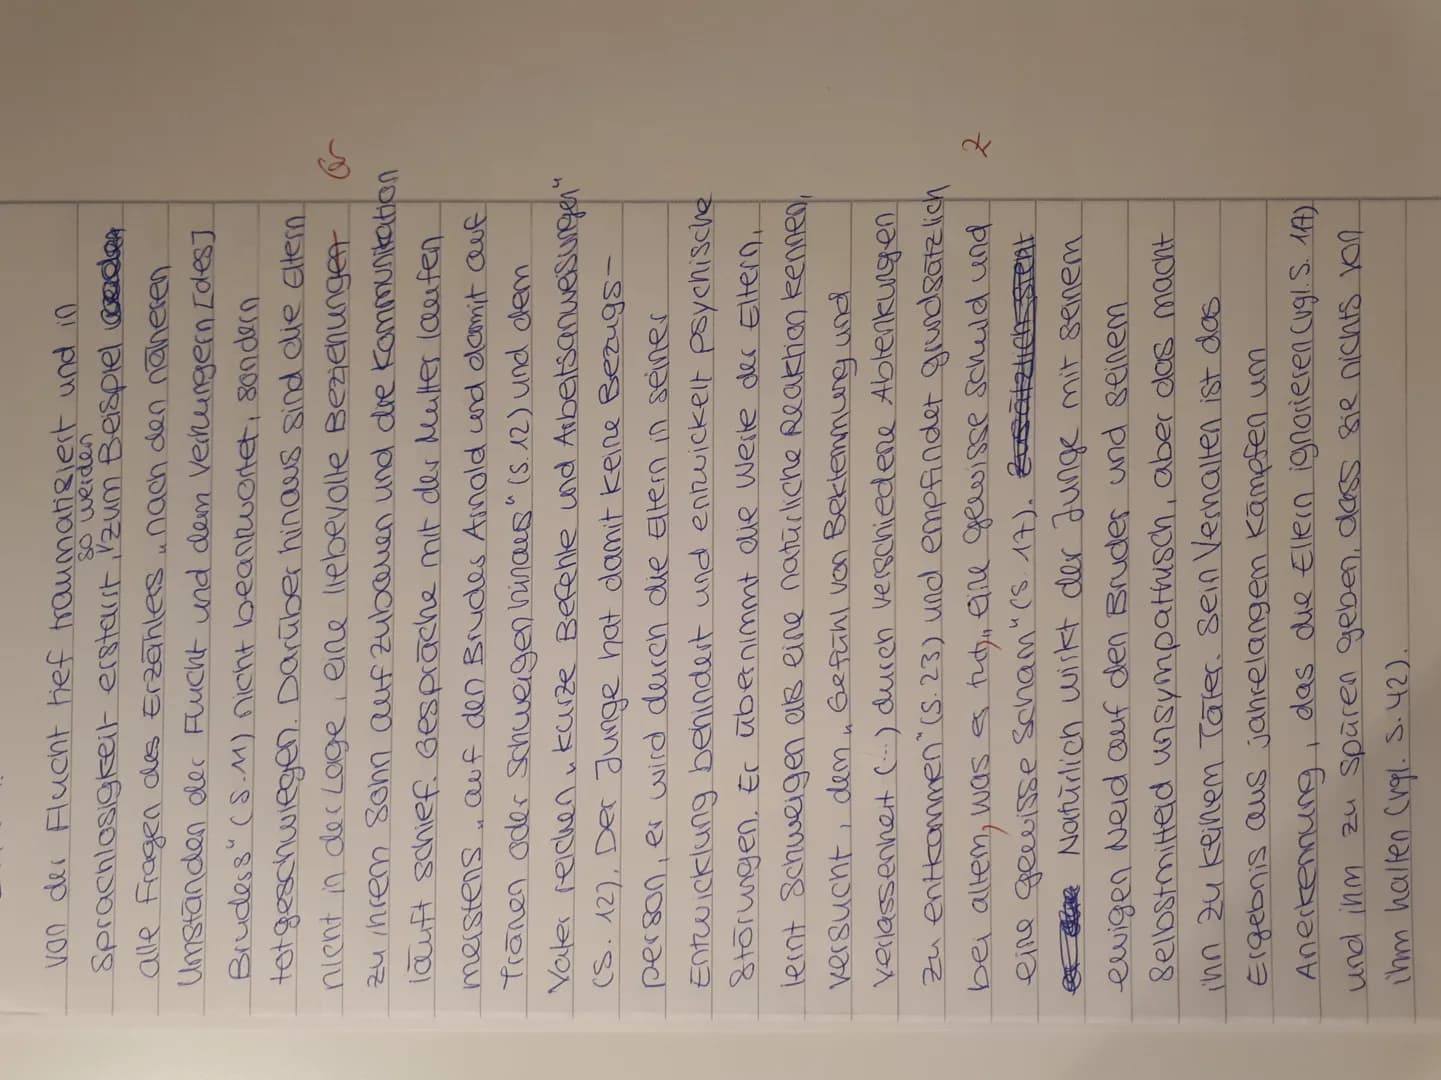 von der Flucht tief traumatisiert und in
so werden
Sprachlosigkeit erstarrt, zum Beispiel
alle Fragen des Erzählers „nach den näheren
Umständen der Flucht und dem Verhungern [des]
Bruders" (S. 11) nicht beantwortet, sondern
totgeschwiegen. Darüber hinaus sind die Eltern
nicht in der Lage, eine liebevolle Beziehungen
Gr
zu ihrem Sohn aufzubauen und die Kommunikation
läuft schief. Gespräche mit der Mutter laufen
meistens „auf den Bruder Arnold und damit auf
Tränen oder Schweigen hinaus" (S. 12) und dem
Vater reichen „kurze Befehle und Arbeitsanweisungen"
(S. 12). Der Junge hat damit keine Bezugs-
person, er wird durch die Eltern in seiner
Entwicklung behindert und entwickelt psychische
Störungen. Er übernimmt die Werte der Eltern,
lernt Schweigen als eine natürliche Reaktion kennen,
versucht, dem „Gefühl von Beklemmung und
Verlassenheit (...) durch verschiedene Ablenkungen
zu entkommen" (S. 23) und empfindet grundsätzlich
bei allem, was es tut, „eine gewisse Schuld und
Z
eine gewisse Scham" (S. 17).
Natürlich wirkt der Junge mit seinem
ewigen Neid auf den Bruder und seinem
Selbstmitleid unsympathisch, aber das macht
ihn zu keinem Täter. Sein Verhalten ist das
Ergebnis aus jahrelangen Kämpfen um
Anerkennung, das die Eltern ignorieren (vgl. S. 17)
und ihm zu spüren geben, dass sie nichts von
ihm halten (vgl. S. 42).